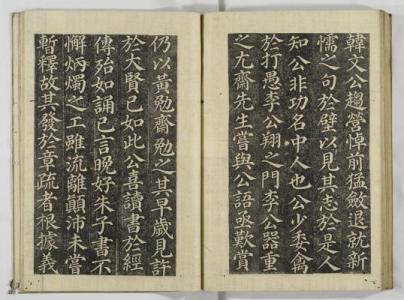 韓文公趨營悼前猛斂退就新
懦之句於壁以見其志於是人
知公非功名中人也公少委禽
於打愚李公翔之門李公器重
之尤齋先生嘗與公語亟歎賞
仍以黃勉齋勉之其早歲見許
於大賢已如此公喜讀書於經
傳殆如誦己言晚好朱子書不
懈炳燭之工雖流離顚沛未嘗
暫釋故其發於章疏者根據義